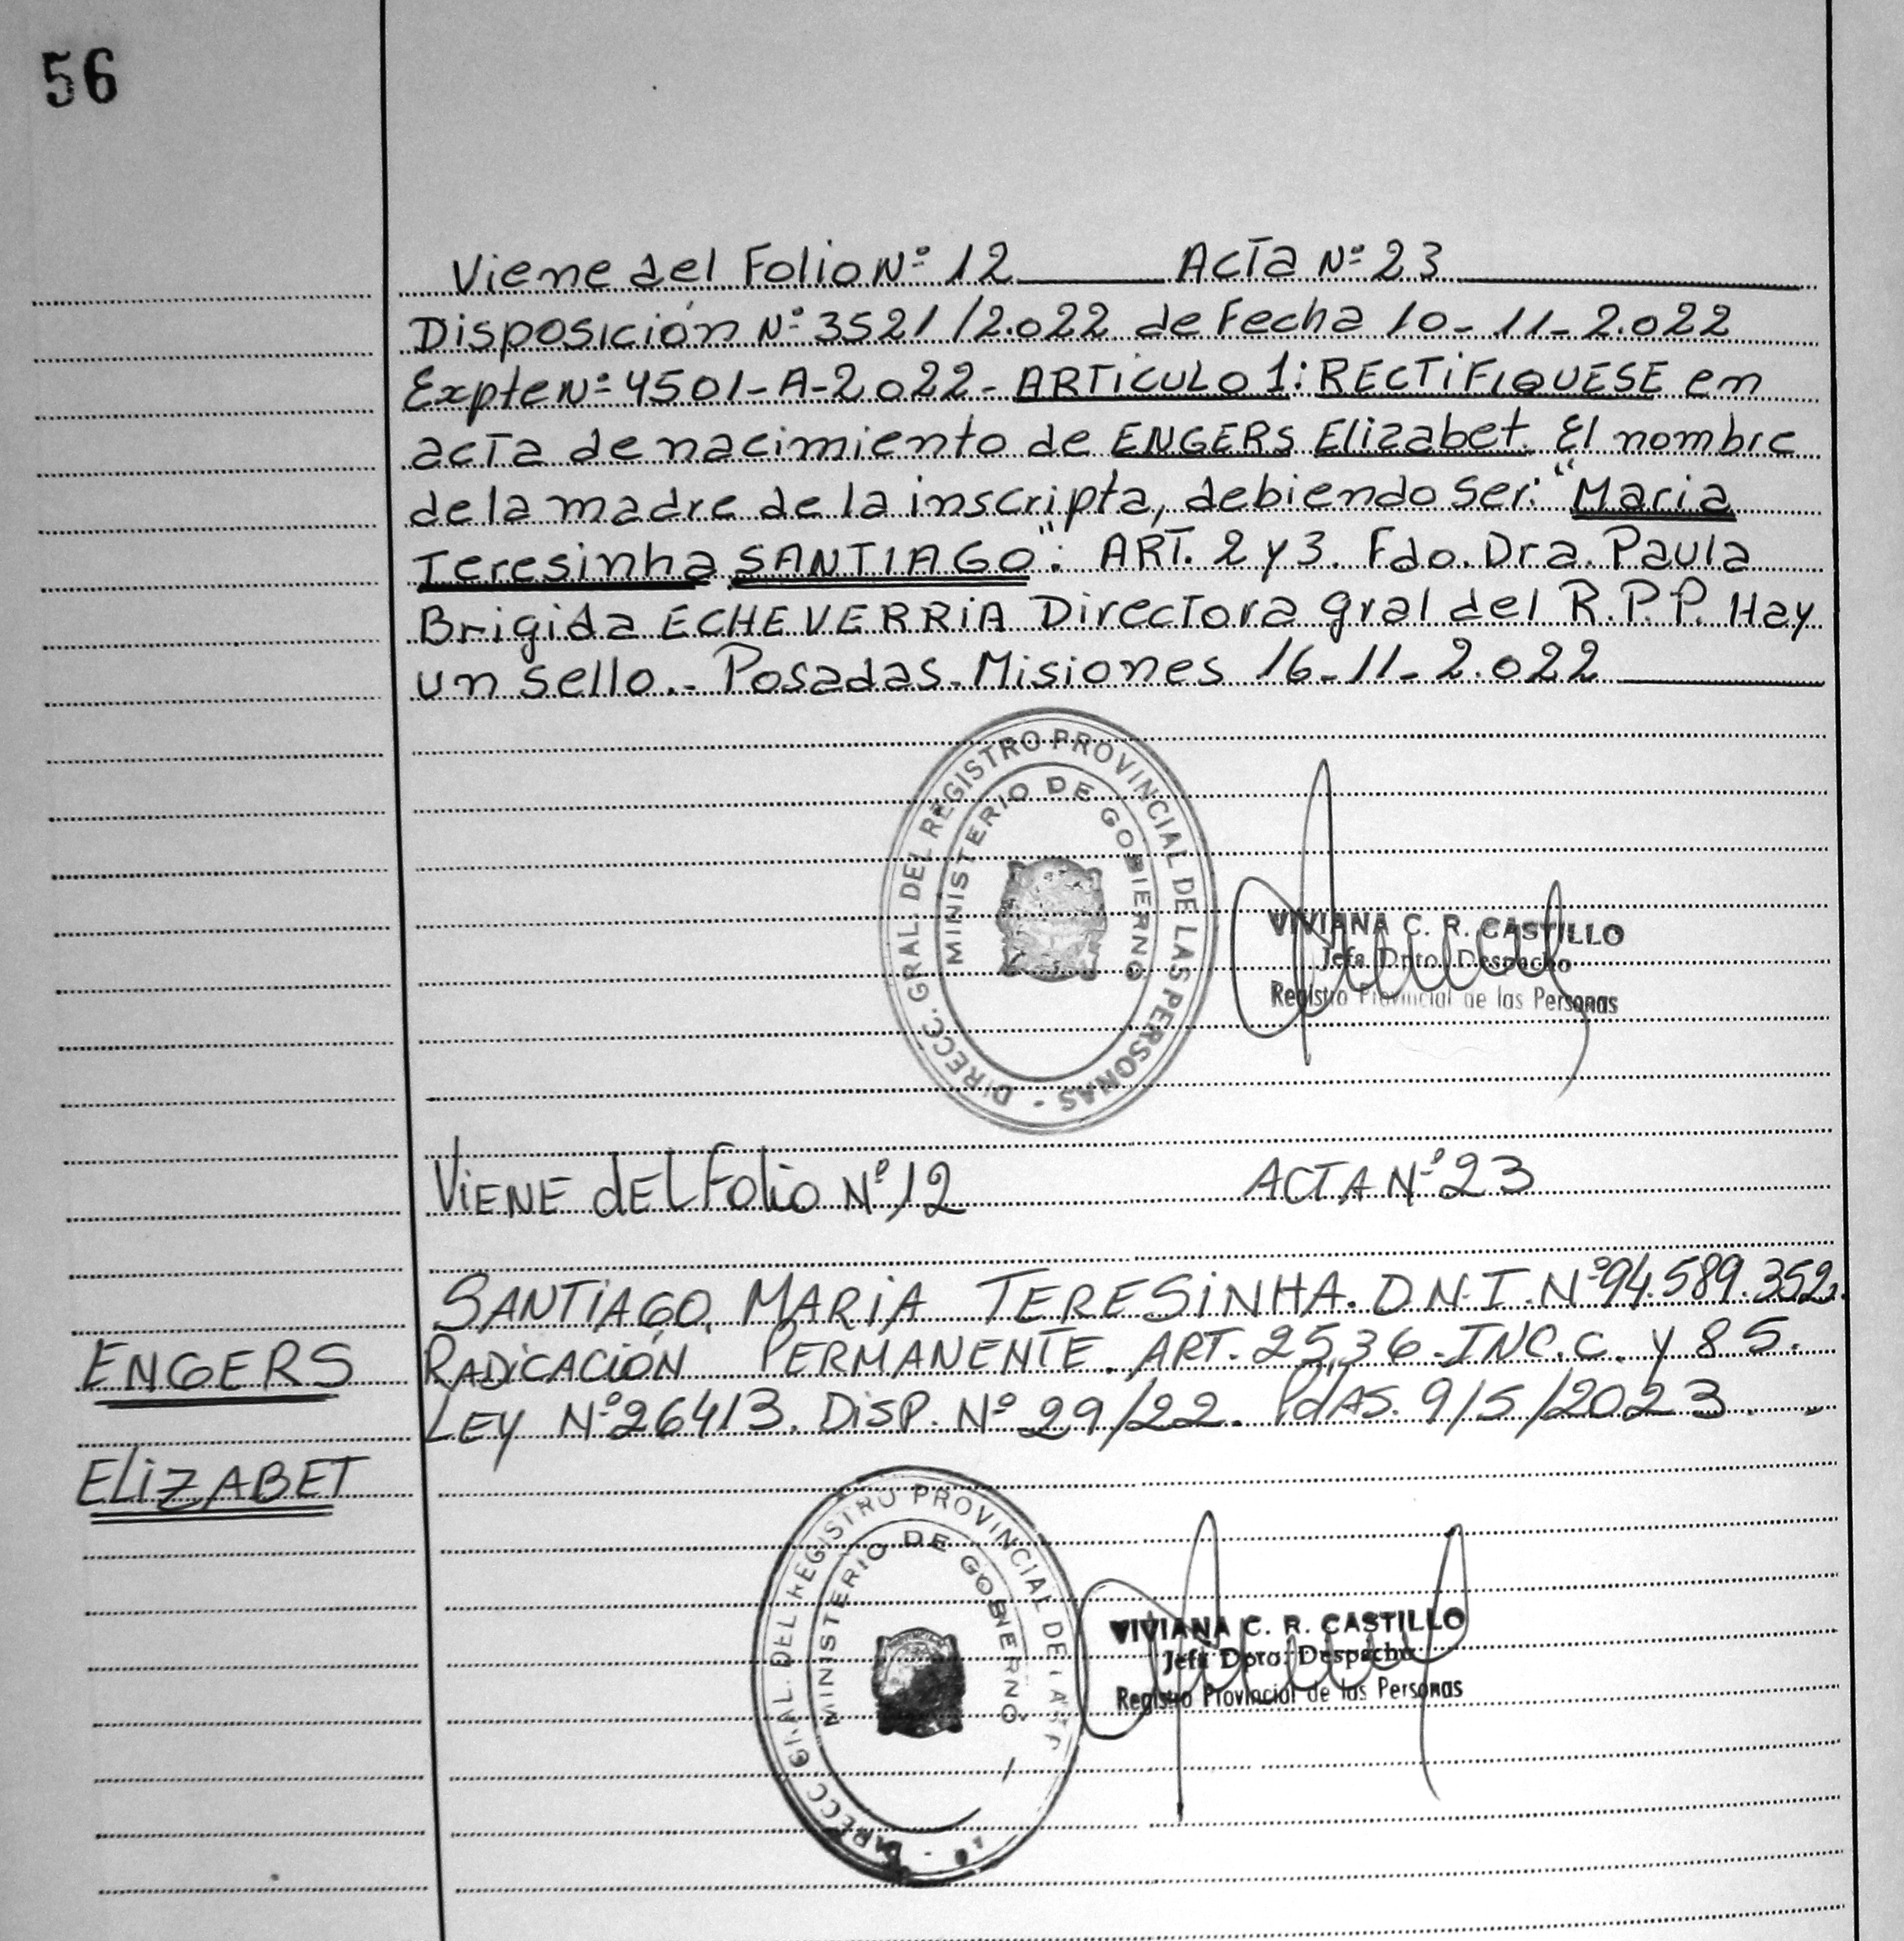 56
Viene del Folio Nº 12 Acta Nº 23
Disposición Nº 3521/2.022 de Fecha 10-11-2.022
Expte Nº 4501-A-2022- ARTICULO 1: RECTIFIQUESE en
acta de nacimiento de ENGERS Elizabet. El nombre
de la madre de la inscripta, debiendo ser: "Maria
Teresinha SANTIAGO". ART. 2 y 3. Fdo. Dra. Paula
Brigida ECHEVERRIA Directora gral del R.P.P. Hay
un sello.- Posadas-Misiones 16-11-2.022
DIRECC. GRAL. DEL REGISTRO PROVINCIAL DE LAS PERSONAS -
MINISTERIO DE GOBIERNO
VIVIANA C. R. CASTILLO
Jefa Dpto. Despacho
Registro Provincial de las Personas
VIENE dEL Folio Nº 12 ACTA Nº 23
SANTIAGO, MARIA TERESINHA. D.N.I. Nº 94.589.352.
ENGERS RADICACIÓN PERMANENTE. ART. 25,36-INC.C. y 85.
LEY Nº 26413. DISP. Nº 29/22. PdAS. 9/5/2023.
ELIZABET
DIRECC GRAL. DEL REGISTRO PROVINCIAL DE
MINISTERIO DE GOBIERNO
VIVIANA C. R. CASTILLO
Jefa Dpto. Despacho
Registro Provincial de las Personas